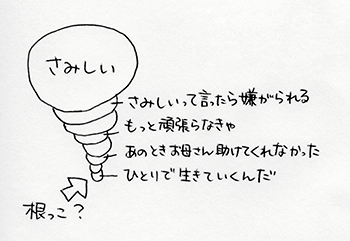 さみしい
さみしいって言ったら嫌がられる
もっと頑張らなきゃ
あのときお母さん助けてくれなかった
ひとりで生きていくんだ
根っこ？